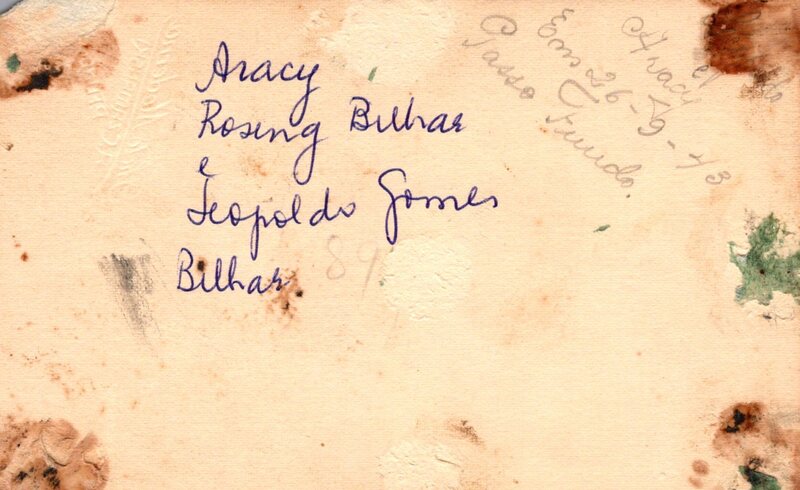 Aracy
Rosing Bilhar
e
Leopoldo Gomes
Bilhar
89
Aracy e
Em 26-9-43
Passo Fundo.